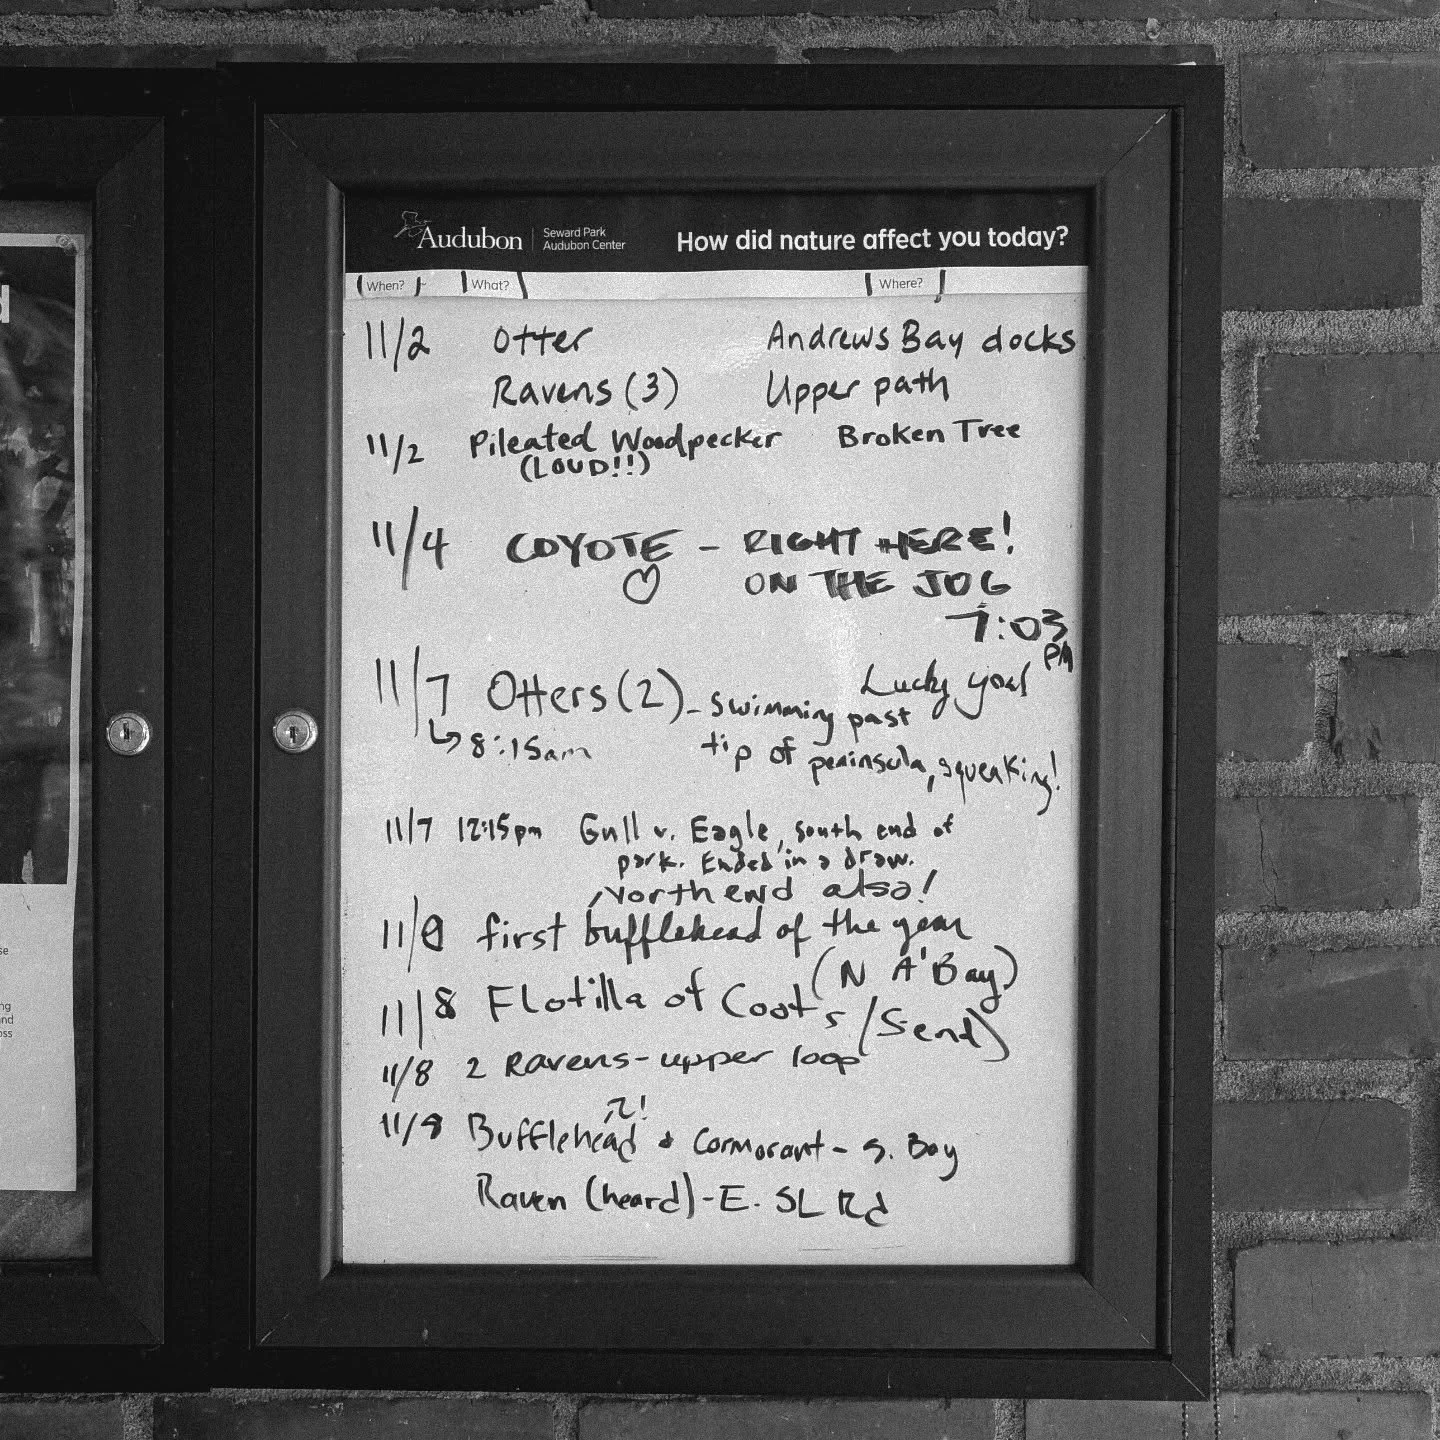 Audubon
Seward Park
Audubon Center
How did nature affect you today?
When? What? Where?
11/2 Otter Andrews Bay docks
Ravens (3) Upper path
11/2 Pileated Woodpecker Broken Tree
(LOUD!!)
11/4 COYOTE - RIGHT HERE!
ON THE JOG
7:03
PM
Lucky you!
11/7 Otters (2) - swimming past
8:15am tip of peninsula, squeaking!
11/7 12:15pm Gull v. Eagle, south end of
park. Ended in a draw.
North end also!
11/8 first bufflehead of the year
(N A'Bay)
11/8 Flotilla of Coots (S end)
11/8 2 Ravens - upper loop
11/9 Bufflehead & Cormorant - S. Bay
Raven (heard) - E. SL Rd
se
ng
nd
oss
d